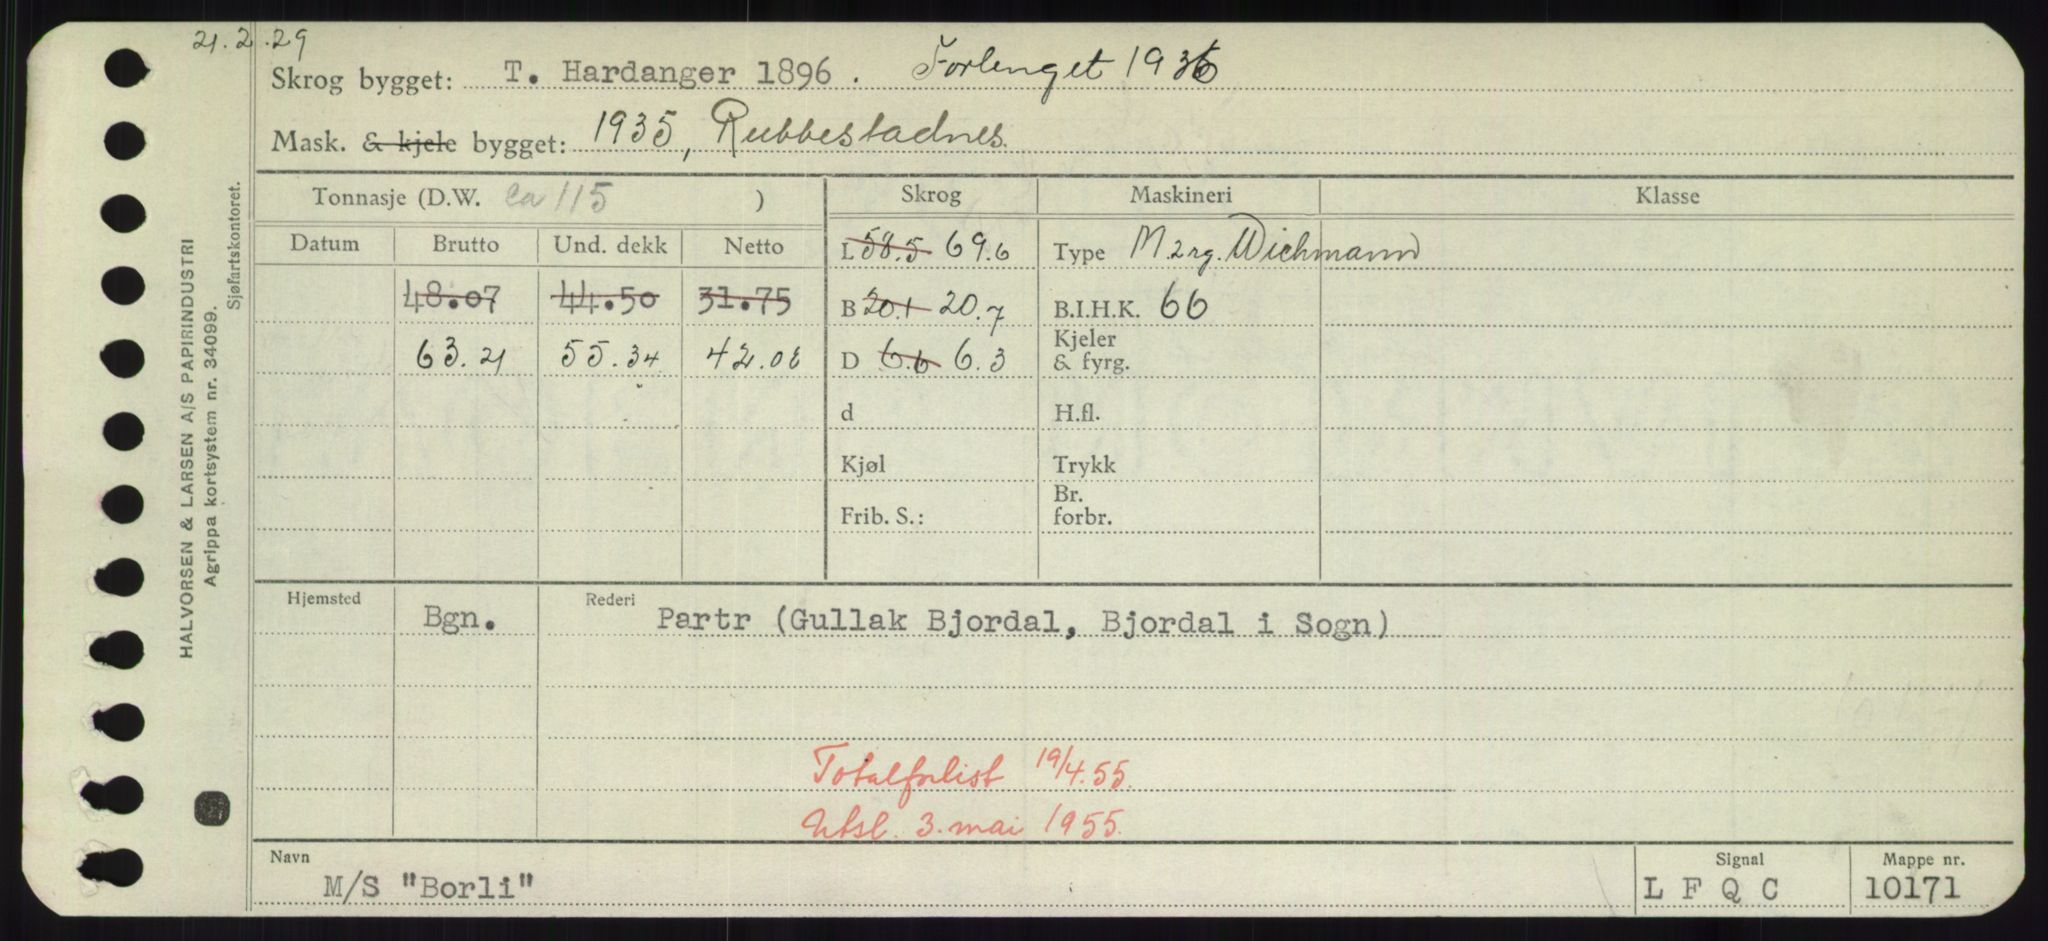 21.2.29
Skrog bygget: T. Hardanger 1896. Forlenget 1936
Mask. & kjele bygget: 1935, Rubbestadnes.
Tonnasje (D.W. ca 115 ) Skrog Maskineri Klasse
Datum Brutto Und. dekk Netto L 58.5 69.6 Type M 2 rg. Wichmann
48.07 44.50 31.75 B 20.1 20.7 B.I.H.K. 66
63.21 55.34 D 6.6 6.3 Kjeler
& fyrg.
d H.fl.
Kjøl Trykk
Frib. S.: Br.
forbr.
Hjemsted Bgn. Rederi Partr (Gullak Bjordal, Bjordal i Sogn)
Totalforlist 19/4.55.
Utsl. 3. mai 1955.
Navn Signal Mappe nr.
M/S "Borli" L F Q C 10171
HALVORSEN & LARSEN A/S PAPIRINDUSTRI
Agrippa kortsystem nr. 34099.
Sjøfartskontoret.